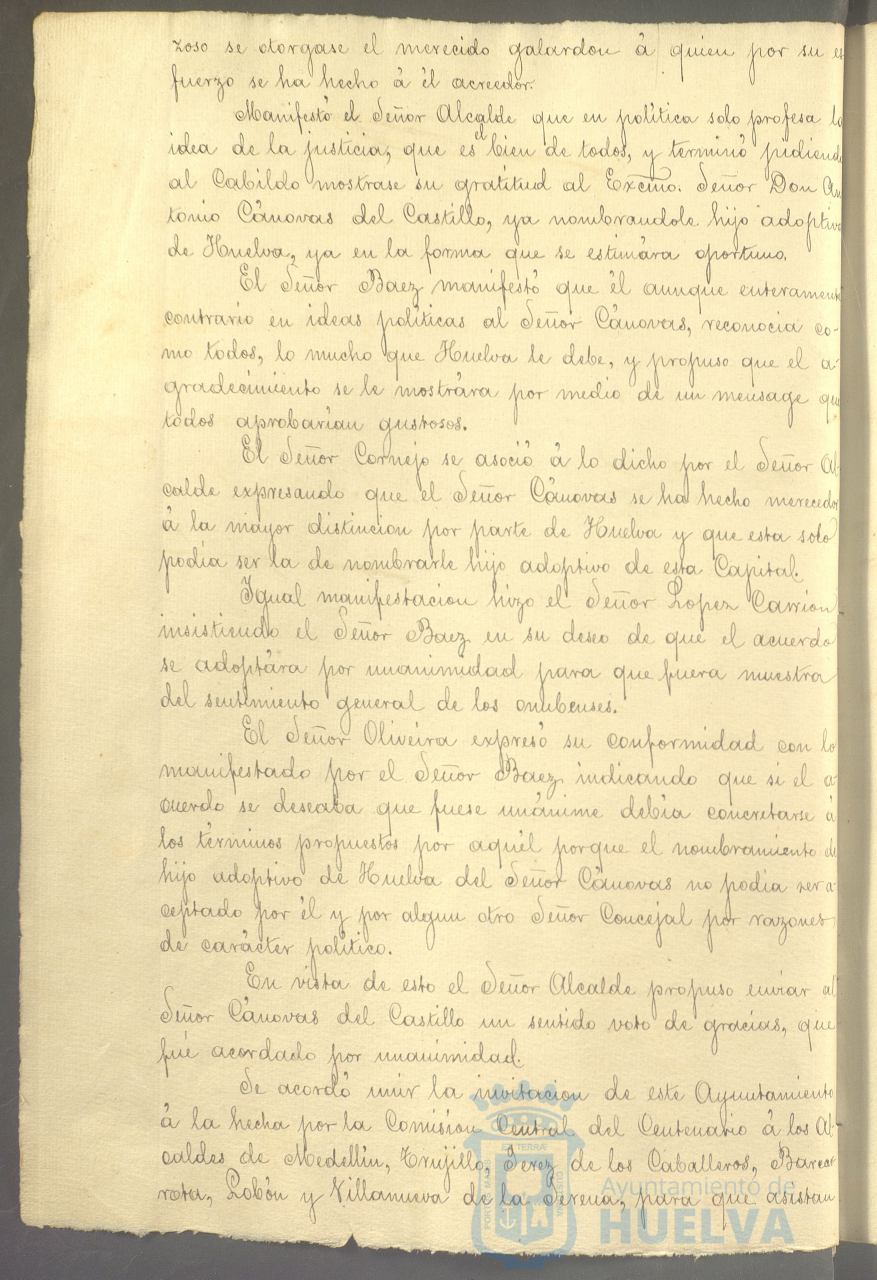 zoso se otorgase el merecido galardon á quien por su es
fuerzo se ha hecho á él acreedor.
Manifestó el Señor Alcalde que en política solo profesa la
idea de la justicia, que es el bien de todos, y terminó pidiendo
al Cabildo mostrase su gratitud al Excmo. Señor Don An
tonio Cánovas del Castillo, ya nombrandole hijo adoptivo
de Huelva, ya en la forma que se estimára oportuno.
El Señor Baez manifestó que él aunque enteramente
contrario en ideas políticas al Señor Cánovas, reconocia co-
mo todos, lo mucho que Huelva le debe, y propuso que el a-
gradecimiento se le mostrára por medio de un mensage que
todos aprobarían gustosos.
El Señor Cornejo se asoció á lo dicho por el Señor Al-
calde expresando que el Señor Cánovas se ha hecho merecedor
á la mayor distincion por parte de Huelva y que esta solo
podia ser la de nombrarle hijo adoptivo de esta Capital.
Igual manifestacion hizo el Señor Lopez Carrion
insistiendo el Señor Baez en su deseo de que el acuerdo
se adoptára por unanimidad para que fuera muestra
del sentimiento general de los onubenses.
El Señor Oliveira expresó su conformidad con lo
manifestado por el Señor Baez indicando que si el a-
cuerdo se deseaba que fuese unánime debia concretarse á
los términos propuestos por aquél porque el nombramiento de
hijo adoptivo de Huelva del Señor Cánovas no podia ser a-
ceptado por él y por algun otro Señor Concejal por razones
de carácter político.
En vista de esto el Señor Alcalde propuso enviar al
Señor Cánovas del Castillo un sentido voto de gracias, que
fué acordado por unanimidad.
Se acordó unir la invitacion de este Ayuntamiento
á la hecha por la Comision Central del Centenario á los Al-
caldes de Medellin, Trujillo, Jerez de los Caballeros, Barcar
rota, Lobón y Villanueva de la Serena, para que asistan
Ayuntamiento de
HUELVA